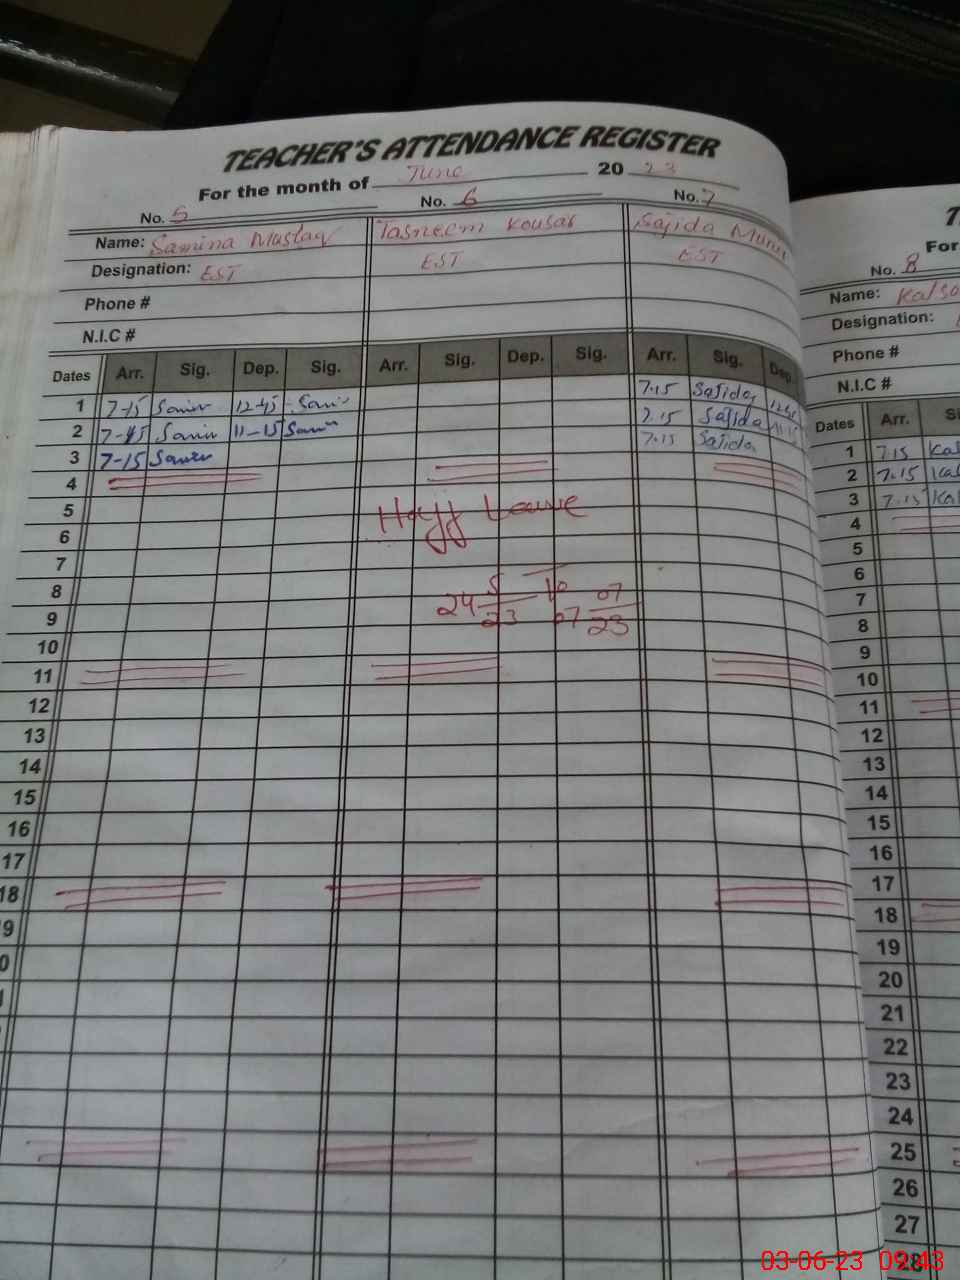 TEACHER'S ATTENDANCE REGISTER
For the month of June 20 23
No. 5 No. 6 No. 7
Name: Samina Mustaq Tasneem Kousar Sajida
Designation: EST EST EST
Phone #
N.I.C #
Dates Arr. Sig. Dep. Sig. Arr. Sig. Dep. Sig. Arr. Sig. Dep.
1 7-15 12-45 7.15 Sajida
2 11-15 7.15 Sajida
3 7-15 7.15 Sajida
4
5 Hajj Leave
6
7
8
9 24 5/23 To 07 07/23
10
11
12
13
14
15
16
17
18
T
For
No. 8
Name:
Designation:
Phone #
N.I.C #
Dates Arr.
1 7.15
2 7.15
3 7.15
4
5
6
7
8
9
10
11
12
13
14
15
16
17
18
19
20
21
22
23
24
25
26
27
28
03-06-23 09:43